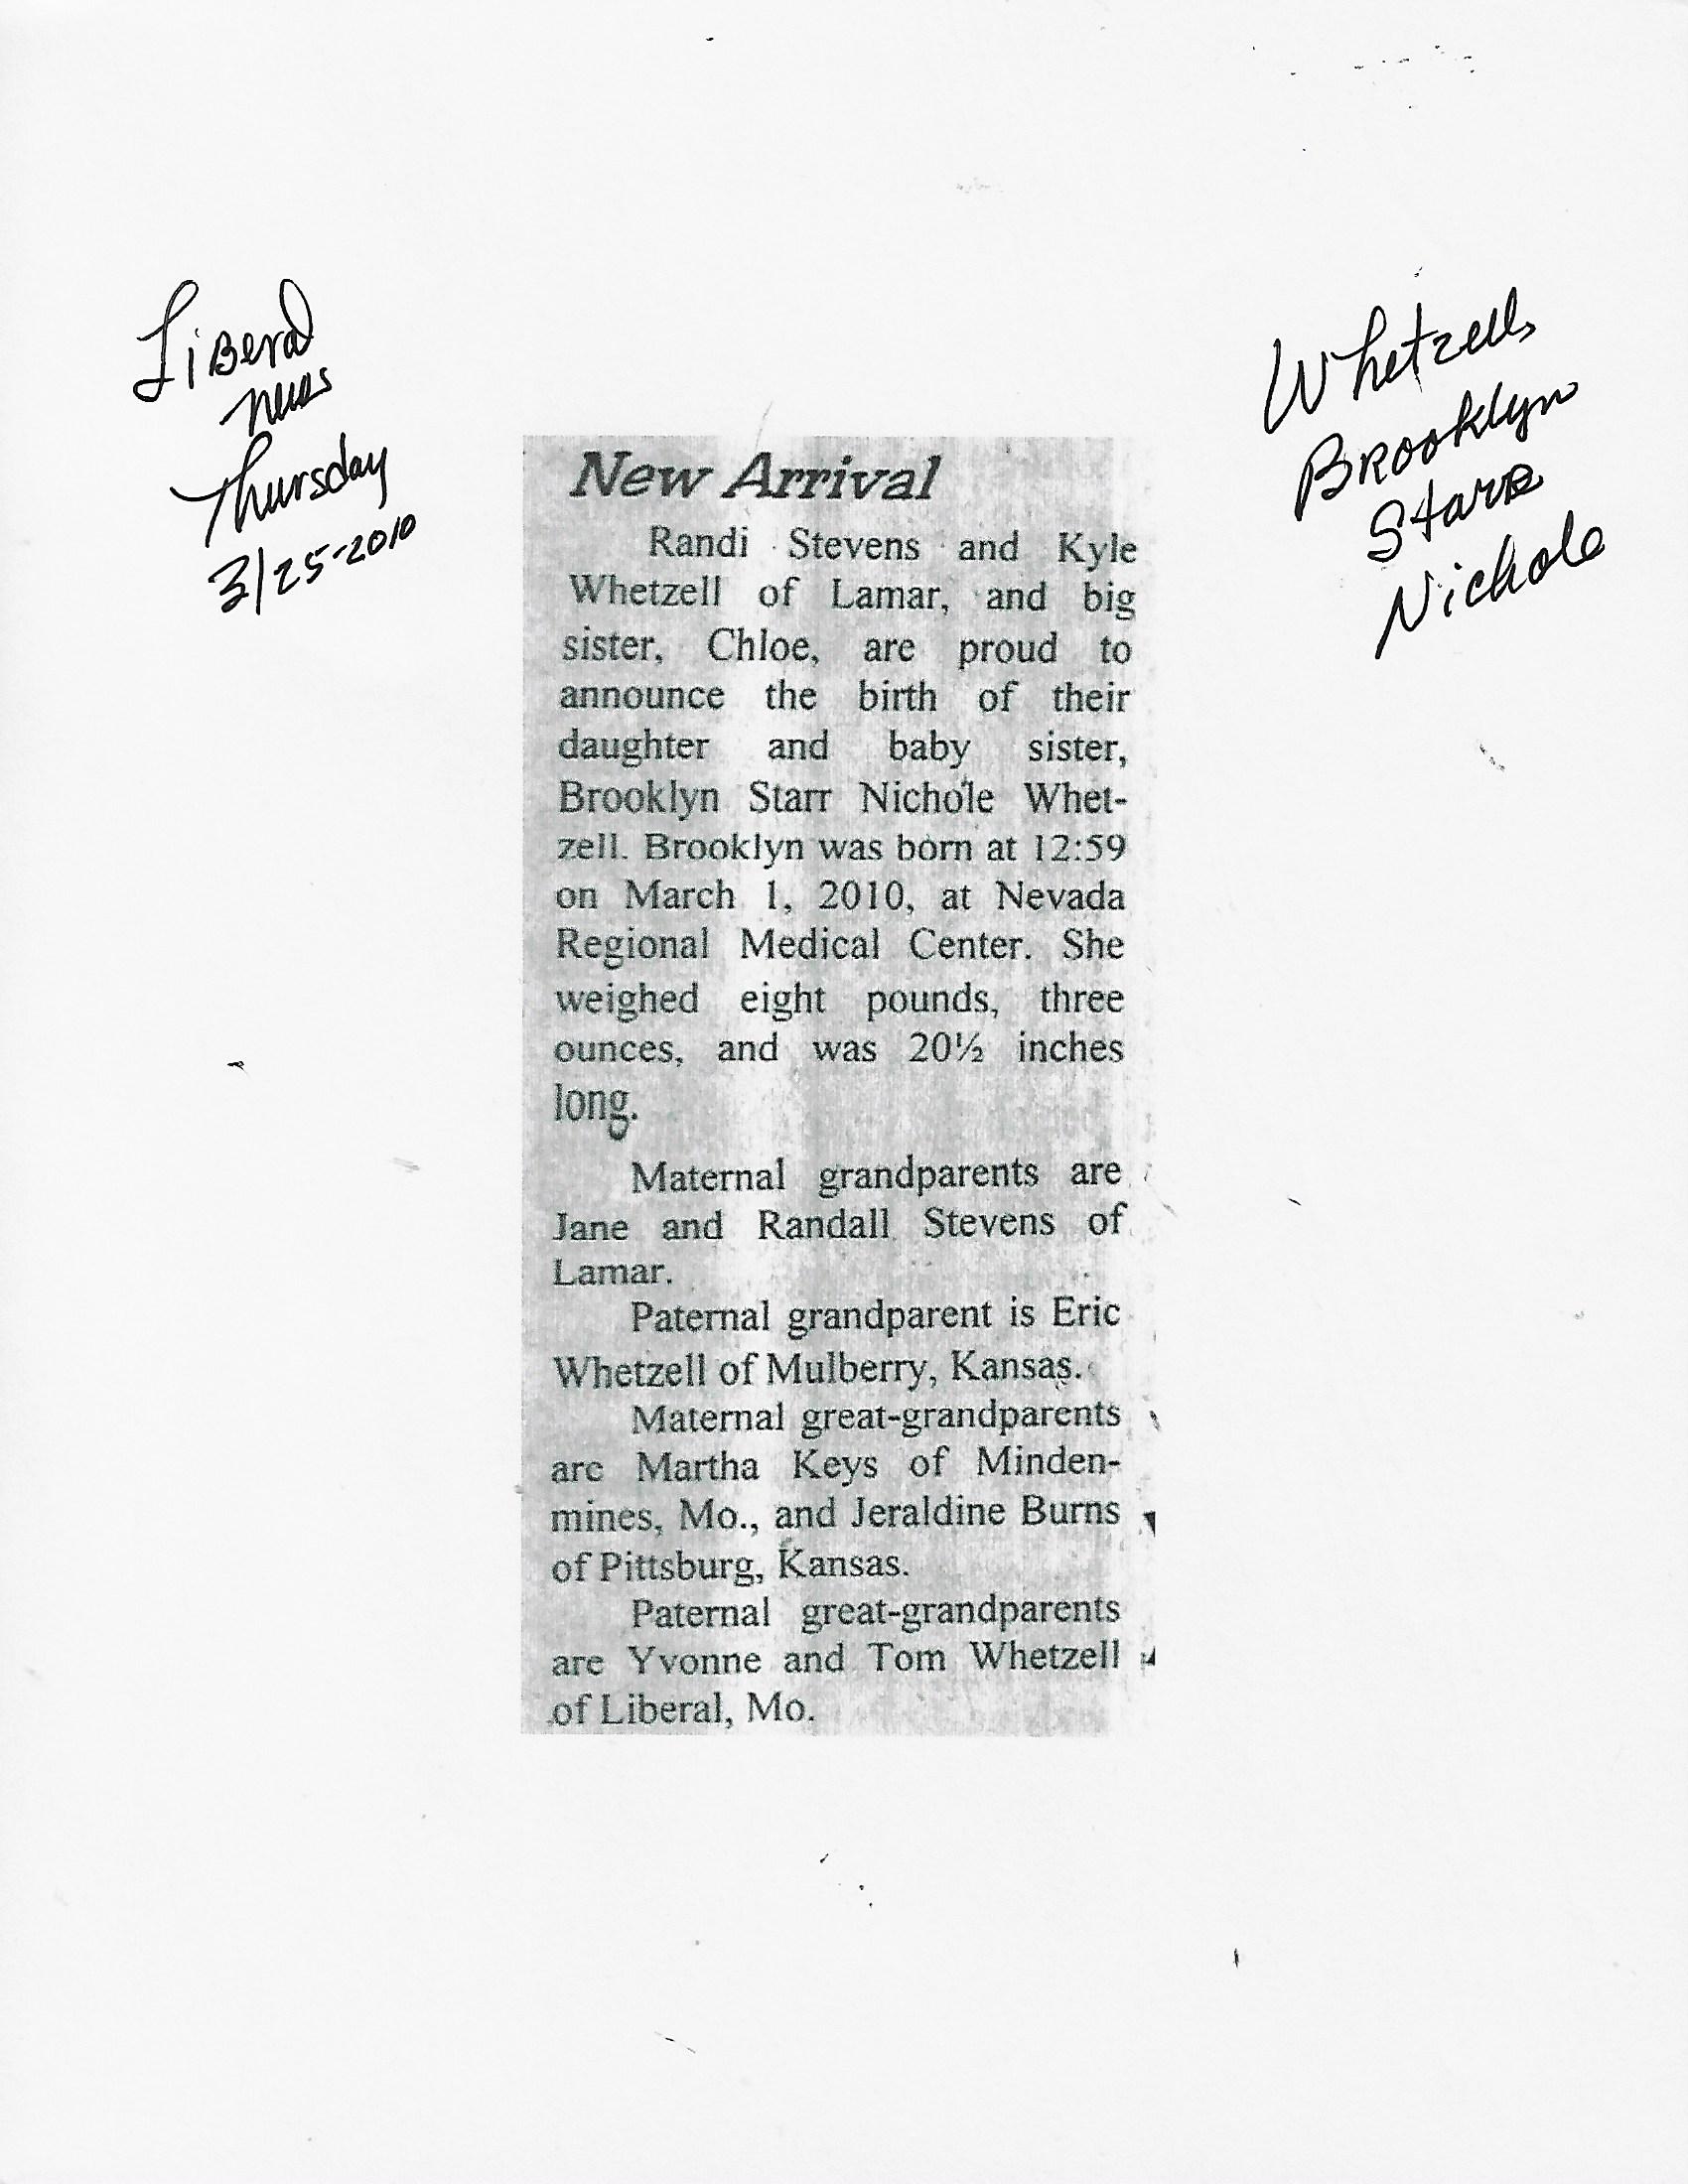 Liberal
News
Thursday
3/25-2010
Whetzell,
Brooklyn
Starr
Nichole
New Arrival
Randi Stevens and Kyle
Whetzell of Lamar, and big
sister, Chloe, are proud to
announce the birth of their
daughter and baby sister,
Brooklyn Starr Nichole Whet-
zell. Brooklyn was born at 12:59
on March 1, 2010, at Nevada
Regional Medical Center. She
weighed eight pounds, three
ounces, and was 20½ inches
long.
Maternal grandparents are
Jane and Randall Stevens of
Lamar.
Paternal grandparent is Eric
Whetzell of Mulberry, Kansas.
Maternal great-grandparents
are Martha Keys of Minden-
mines, Mo., and Jeraldine Burns
of Pittsburg, Kansas.
Paternal great-grandparents
are Yvonne and Tom Whetzell
of Liberal, Mo.